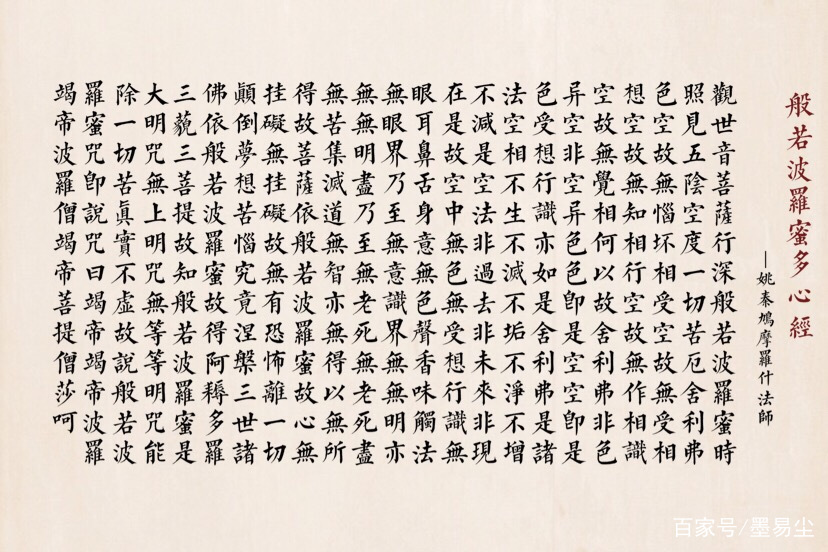 般若波羅蜜多心經
—姚秦鳩摩羅什法師
觀世音菩薩行深般若波羅蜜時
照見五陰空度一切苦厄舍利弗
色空故無惱坏相受空故無受相
想空故無知相行空故無作相識
空故無覺相何以故舍利弗非色
异空非空异色色卽是空空卽是
色受想行識亦如是舍利弗是諸
法空相不生不滅不垢不淨不增
不減是空法非過去非未來非現
在是故空中無色無受想行識無
眼耳鼻舌身意無色聲香味觸法
無眼界乃至無意識界無無明亦
無無明盡乃至無老死無老死盡
無苦集滅道無智亦無得以無所
得故菩薩依般若波羅蜜故心無
挂礙無挂礙故無有恐怖離一切
顚倒夢想苦惱究竟涅槃三世諸
佛依般若波羅蜜故得阿耨多羅
三藐三菩提故知般若波羅蜜是
大明咒無上明咒無等等明咒能
除一切苦眞實不虛故說般若波
羅蜜咒卽說咒曰竭帝竭帝波羅
竭帝波羅僧竭帝菩提僧莎呵
百家号/墨易尘